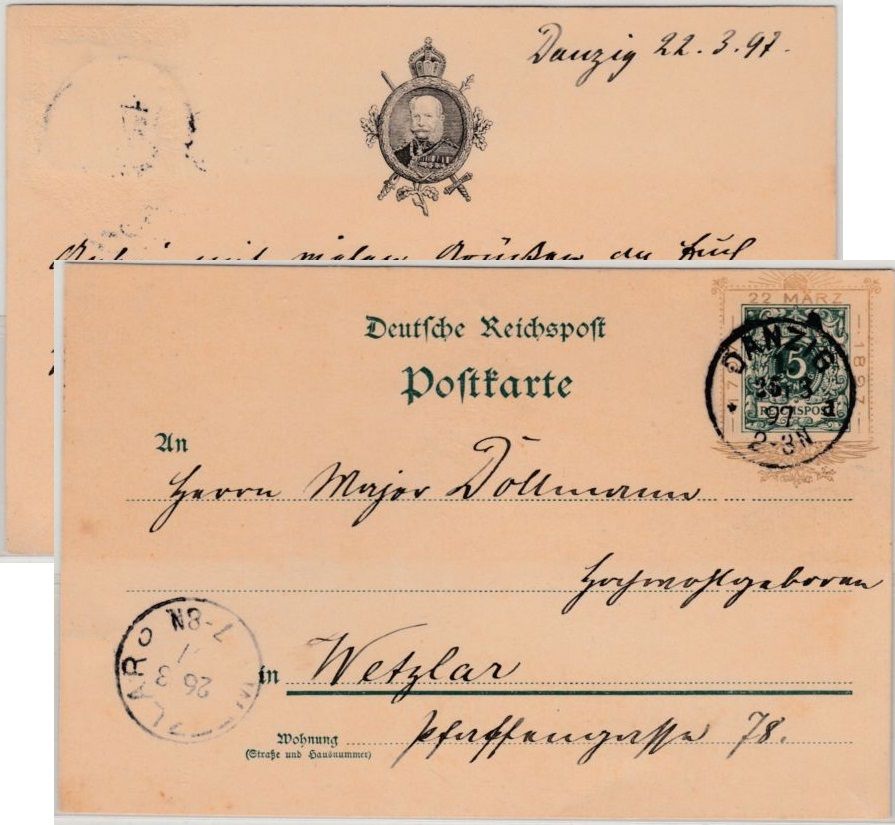 Danzig 22.3.97.
mit vielen Grüßen an Euch
22 MÄRZ
1897
Deutsche Reichspost
Postkarte
DANZIG
5
REICHSPOST
97
2-3N
An
Herrn Major Döllmann
Hochwohlgeboren
in Wetzlar
LAR
26
3
7-8N
Wohnung Pfaffengasse 78.
(Straße und Hausnummer)